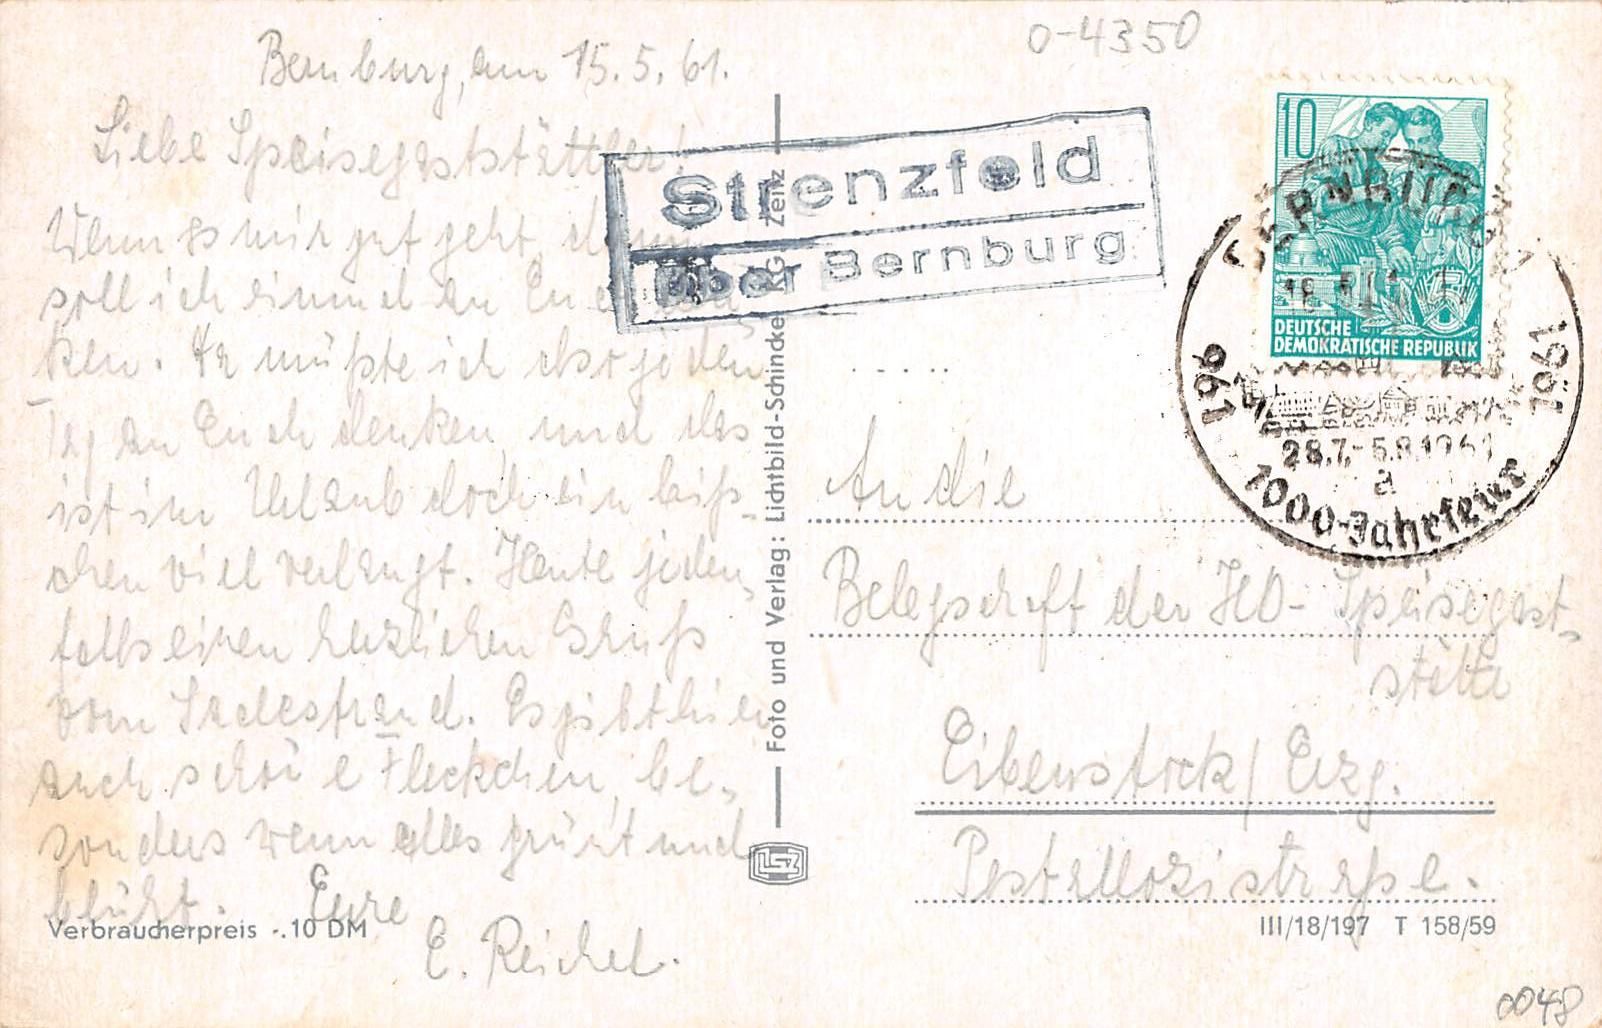 0-4350
Bernburg, am 15.5.61.
Liebe Speisegaststättler!
Wenn es mir gut geht, dann
soll ich einmal an Euch
ken. Da müßte ich also jeden
Tag an Euch denken, und das
ist im Urlaub doch ein biß-
chen viel verlangt. Heute jeden-
falls einen herzlichen Gruß
vom Saalestrand. Es gibt hier
auch schöne Fleckchen, be-
sonders wenn alles grünt und
blüht. Eure
E. Reichel.
Verbraucherpreis -.10 DM
Strenzfeld
über Bernburg
Foto und Verlag: Lichtbild-Schincke KG Zeitz
LSZ
10
DEUTSCHE
DEMOKRATISCHE REPUBLIK
BERNBURG
961 1961
28.7.-5.8.1961
a
1000-Jahrfeier
An die
Belegschaft der HO-Speisegast-
stätte
Eibenstock/Erzg.
Pestallozistraße.
III/18/197 T 158/59
0048